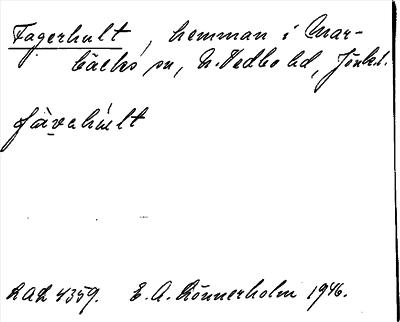 Fagerhult, hemman i Mar-
bäcks sn, N. Vedbo hd, Jönk.l.
fàvǝhúlt
ULA 4359. E. A. Rönnerholm 1946.